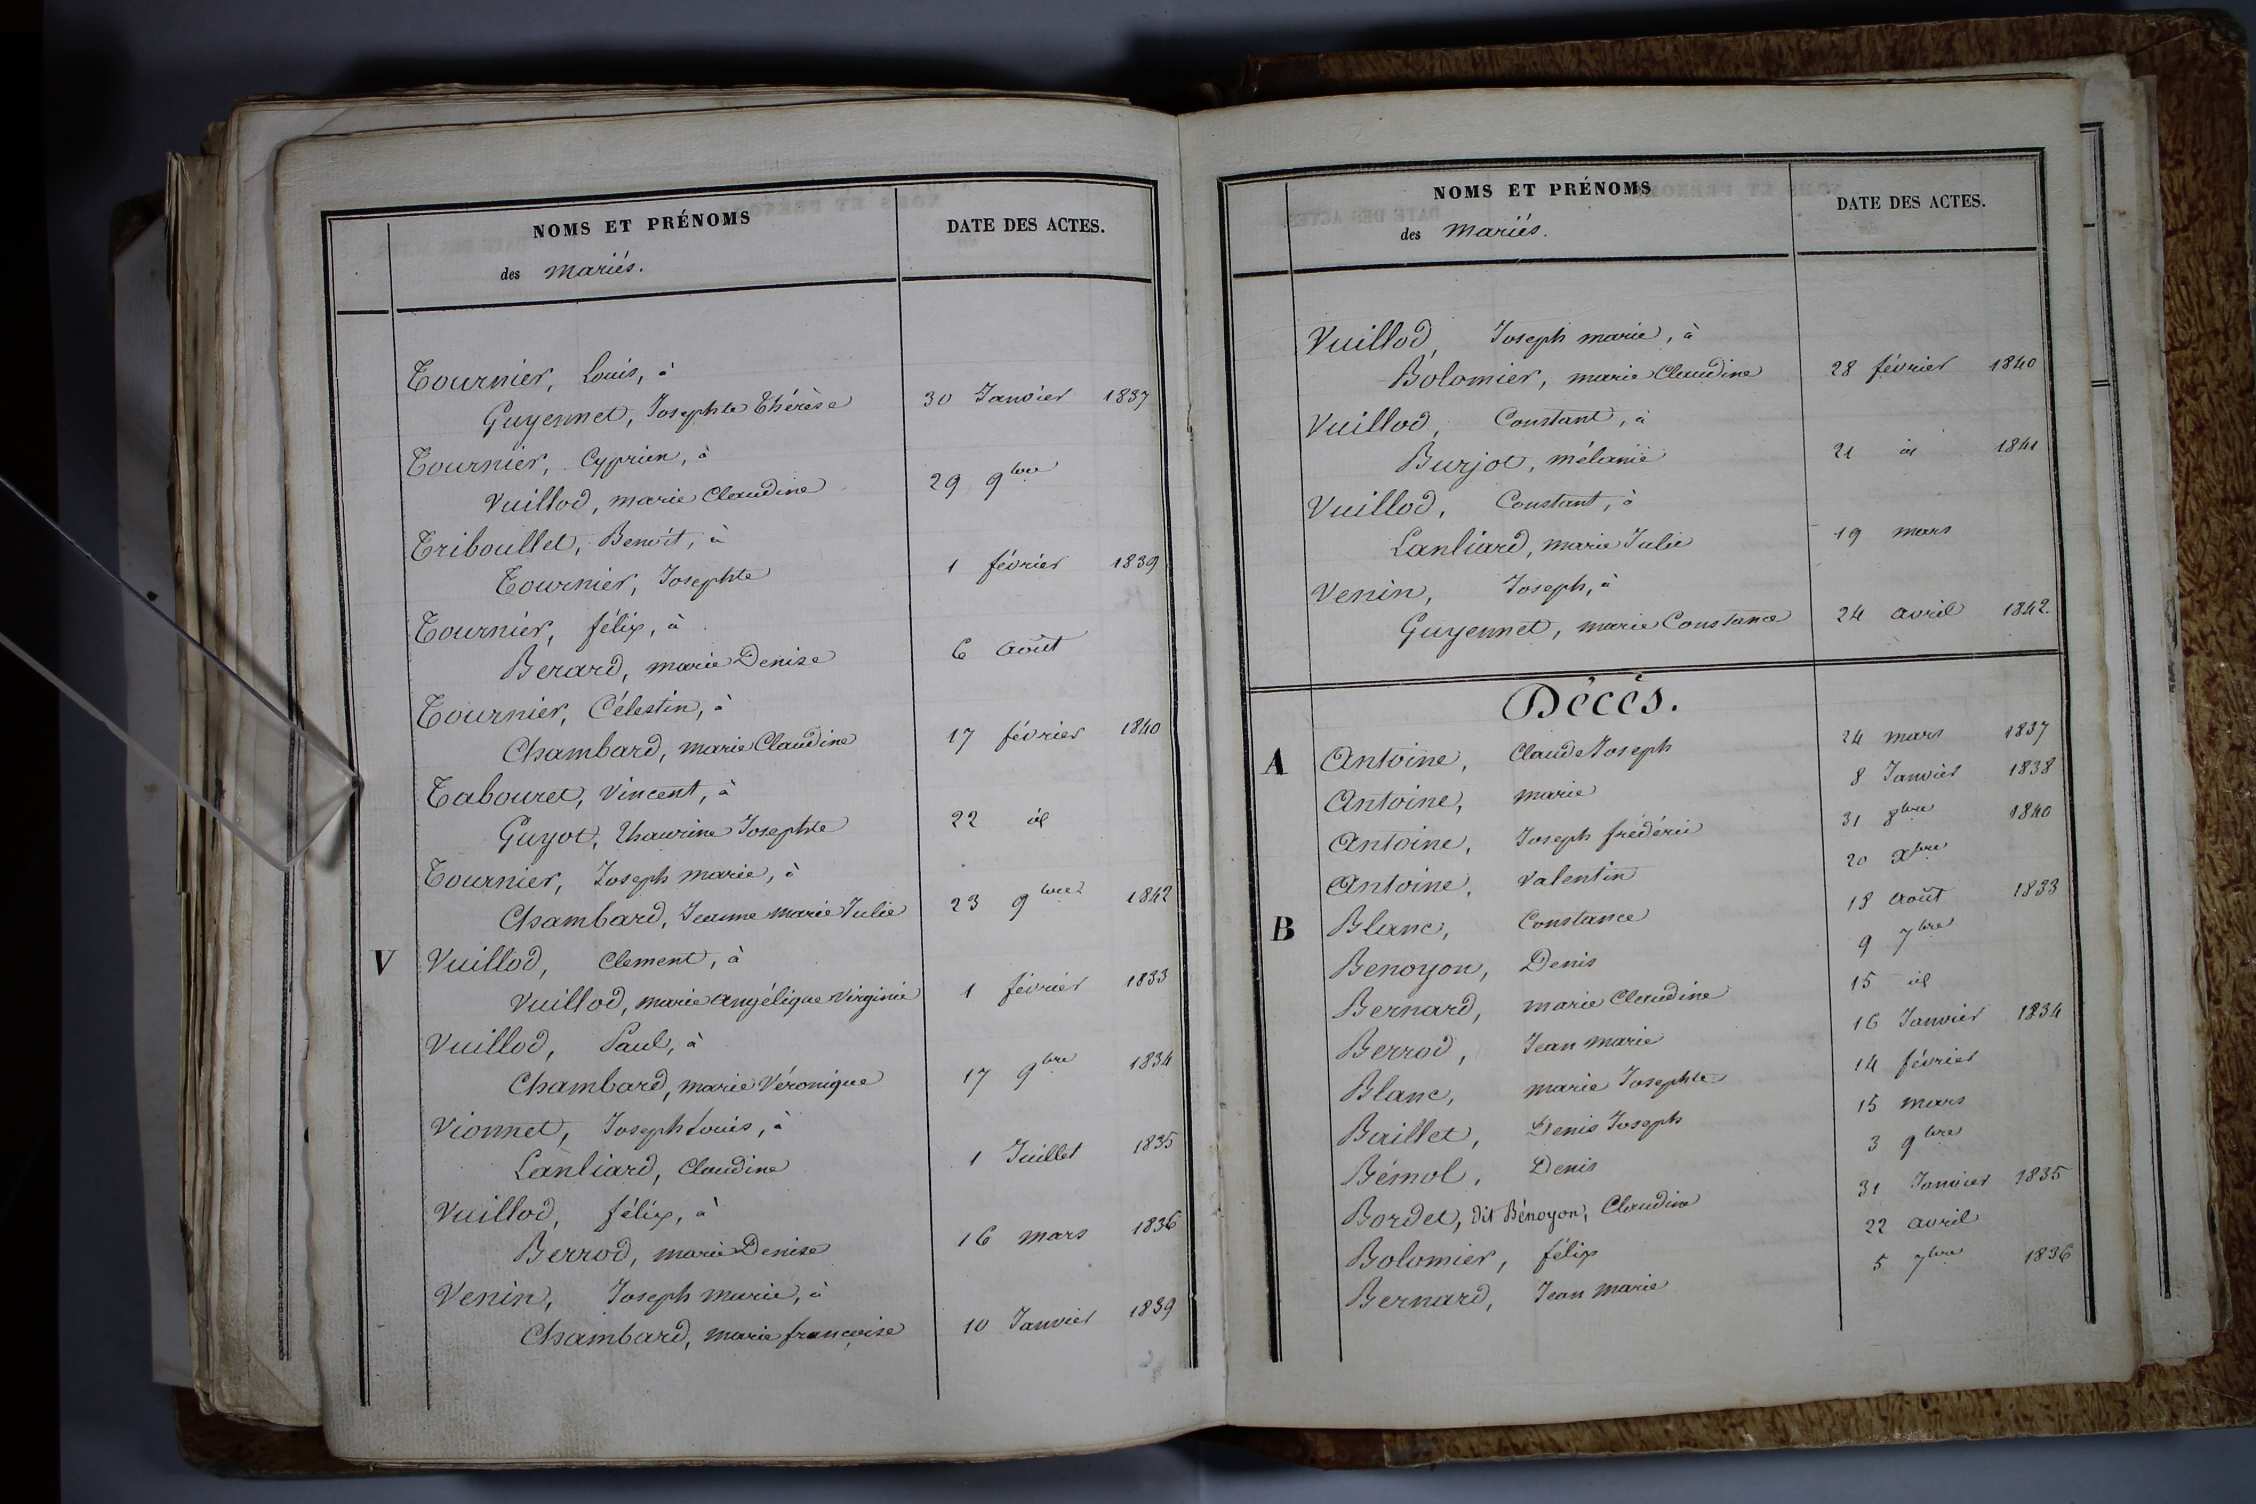 NOMS ET PRÉNOMS
des mariés.
DATE DES ACTES.
Tournier, Louis, à
Guyennet, Josephte Thérèse 30 Janvier 1837
Tournier, Cyprien, à
Vuillod, marie Claudine 29 9bre
Triboullet, Benoit, à
Tournier, Josephte 1 février 1839
Tournier, félix, à
Bérard, marie Denise 6 Août
Tournier, Célestin, à
Chambard, marie Claudine 17 février 1840
Tabouret, Vincent, à
Guyot, Josephte 22 id
Tournier, Joseph marie, à
Chambard, Jeanne marie Julie 23 9bre 1842
V Vuillod, Clement, à
Vuillod, marie angélique Virginie 1 février 1833
Vuillod, Paul, à
Chambard, marie Véronique 17 9bre 1834
Vionnet, Joseph Louis, à
Lanliard, Claudine 1 Juillet 1835
Vuillod, félix, à
Berrod, marie Denise 16 mars 1836
Venin, Joseph marie, à
Chambard, marie françoise 10 Janvier 1839
NOMS ET PRÉNOMS
des mariés.
DATE DES ACTES.
Vuillod, Joseph marie, à
Bolomier, marie Claudine 28 février 1840
Vuillod, Constant, à
Burjot, mélanie 21 id 1841
Vuillod, Constant, à
Lanliard, marie Julie 19 mars
Venin, Joseph, à
Guyennet, marie Constance 24 avril 1842.
Décès.
A Antoine, Claude Joseph 24 mars 1837
Antoine, marie 8 Janvier 1838
Antoine, Joseph frédéric 31 8bre 1840
Antoine, Valentin 20 Xbre
B Blanc, Constance 18 Août 1833
Benoyon, Denis 9 7bre
Bernard, marie Claudine 15 id
Berrod, Jean marie 16 Janvier 1834
Blanc, marie Josephte 14 février
Baillet, Denis Joseph 15 mars
Bémol, Denis 3 9bre
Bordet, dit Bénoyon, Claudine 31 Janvier 1835
Bolomier, félix 22 avril
Bernard, Jean marie 5 7bre 1836